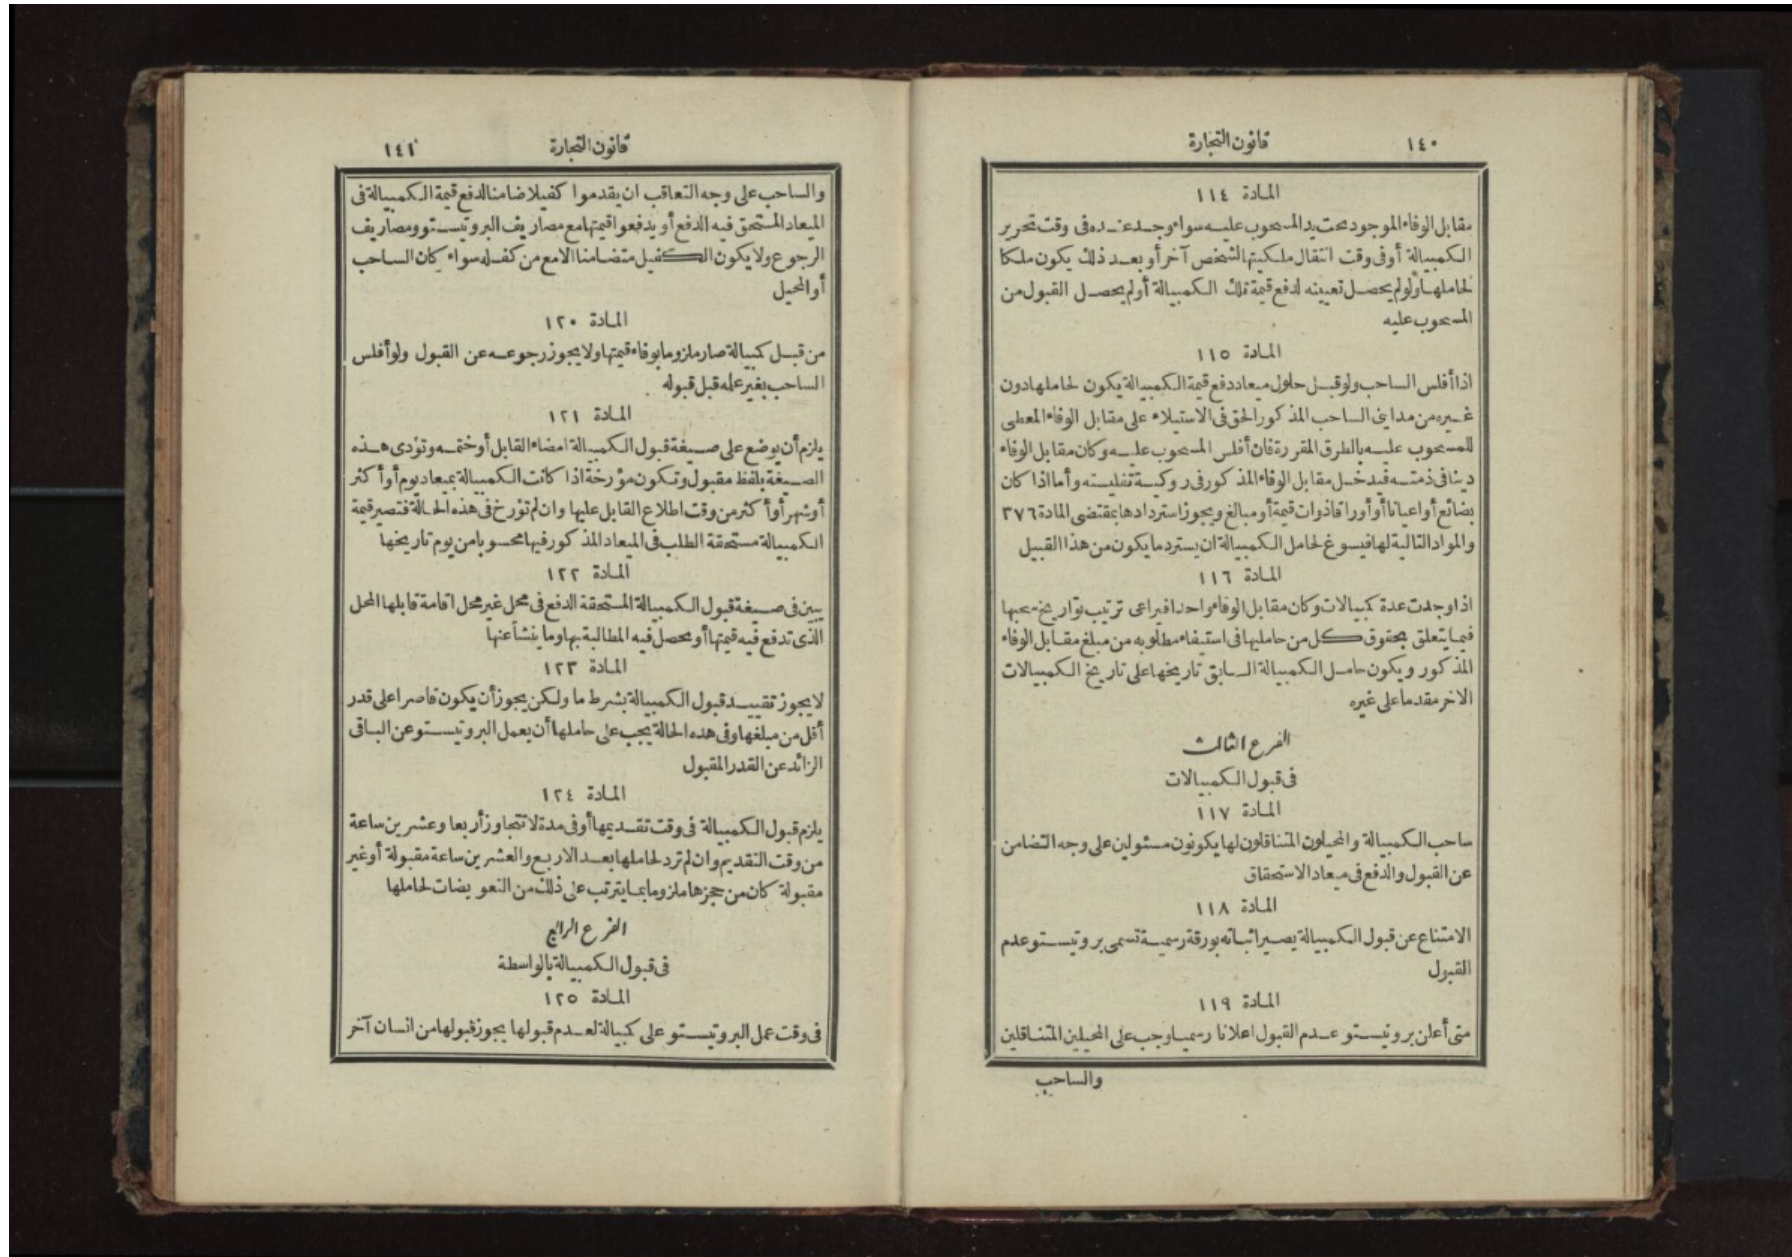 ١٤٠
قانون التجارة
المادة ١١٤
مقابل الوفاء الموجود تحت يد المسحوب عليه سواء وجد عنده فى وقت تحرير
الكمبيالة أو فى وقت انتقال ملكيتها لشخص آخر أو بعد ذلك يكون ملكا
لحاملها ولو لم يحصل تعيينه لدفع قيمة تلك الكمبيالة أو لم يحصل القبول من
المسحوب عليه
المادة ١١٥
اذا أفلس الساحب ولو قبل حلول ميعاد دفع قيمة الكمبيالة يكون لحاملها دون
غيره من مدايني الساحب المذكور الحق فى الاستيلاء على مقابل الوفاء المعطى
للمسحوب عليه بالطرق المقررة فان أفلس المسحوب عليه وكان مقابل الوفاء
دينا فى ذمته فيدخل مقابل الوفاء المذكور فى روكية تفليسته وأما اذا كان
بضائع أو أعيانا أو أوراقا ذوات قيمة أو مبالغ ويجوز استردادها بمقتضى المادة ٣٧٦
والمواد التالية لها فيسوغ لحامل الكمبيالة ان يسترد ما يكون من هذا القبيل
المادة ١١٦
اذا وجدت عدة كمبيالات وكان مقابل الوفاء واحدا فيراعى ترتيب تواريخ سحبها
فيما يتعلق بحقوق كل من حامليها فى استيفاء مطلوبه من مبلغ مقابل الوفاء
المذكور ويكون حامل الكمبيالة السابق تاريخها على تاريخ الكمبيالات
الاخر مقدما على غيره
الفرع الثالث
فى قبول الكمبيالات
المادة ١١٧
ساحب الكمبيالة والمحيلون المتناقلون لها يكونون مسئولين على وجه التضامن
عن القبول والدفع فى ميعاد الاستحقاق
المادة ١١٨
الامتناع عن قبول الكمبيالة يصير اثباته بورقة رسمية تسمى بروتيستو عدم
القبول
المادة ١١٩
متى أعلن بروتيستو عدم القبول اعلانا رسميا وجب على المحيلين المتناقلين
والساحب
قانون التجارة
١٤١
والساحب على وجه التعاقب ان يقدموا كفيلا ضامنا لدفع قيمة الكمبيالة فى
الميعاد المستحق فيه الدفع أو يدفعوا قيمتها مع مصاريف البروتيستو ومصاريف
الرجوع ولا يكون الكفيل متضامنا الا مع من كفله سواء كان الساحب
أو المحيل
المادة ١٢٠
من قبل كمبيالة صار ملزوما بوفاء قيمتها ولا يجوز رجوعه عن القبول ولو أفلس
الساحب بغير علمه قبل قبوله
المادة ١٢١
يلزم أن يوضع على صيغة قبول الكمبيالة امضاء القابل أو ختمه وتؤدى هذه
الصيغة بلفظ مقبول وتكون مؤرخة اذا كانت الكمبيالة بميعاد يوم أو أكثر
أو شهر أو أكثر من وقت اطلاع القابل عليها وان لم تؤرخ فى هذه الحالة فتصير قيمة
الكمبيالة مستحقة الطلب فى الميعاد المذكور فيها محسوبا من يوم تاريخها
المادة ١٢٢
يبين فى صيغة قبول الكمبيالة المستحقة الدفع فى محل غير محل اقامة قابلها المحل
الذى تدفع فيه قيمتها أو يحصل فيه المطالبة بها وما ينشأ عنها
المادة ١٢٣
لا يجوز تقييد قبول الكمبيالة بشرط ما ولكن يجوز أن يكون قاصرا على قدر
أقل من مبلغها وفى هذه الحالة يجب على حاملها أن يعمل البروتيستو عن الباقى
الزائد عن القدر المقبول
المادة ١٢٤
يلزم قبول الكمبيالة فى وقت تقديمها أو فى مدة لا تتجاوز أربعا وعشرين ساعة
من وقت التقديم وان لم ترد لحاملها بعد الاربع والعشرين ساعة مقبولة أو غير
مقبولة كان من حجزها ملزوما بما يترتب على ذلك من التعويضات لحاملها
الفرع الرابع
فى قبول الكمبيالة بالواسطة
المادة ١٢٥
فى وقت عمل البروتيستو على كمبيالة لعدم قبولها يجوز قبولها من انسان آخر